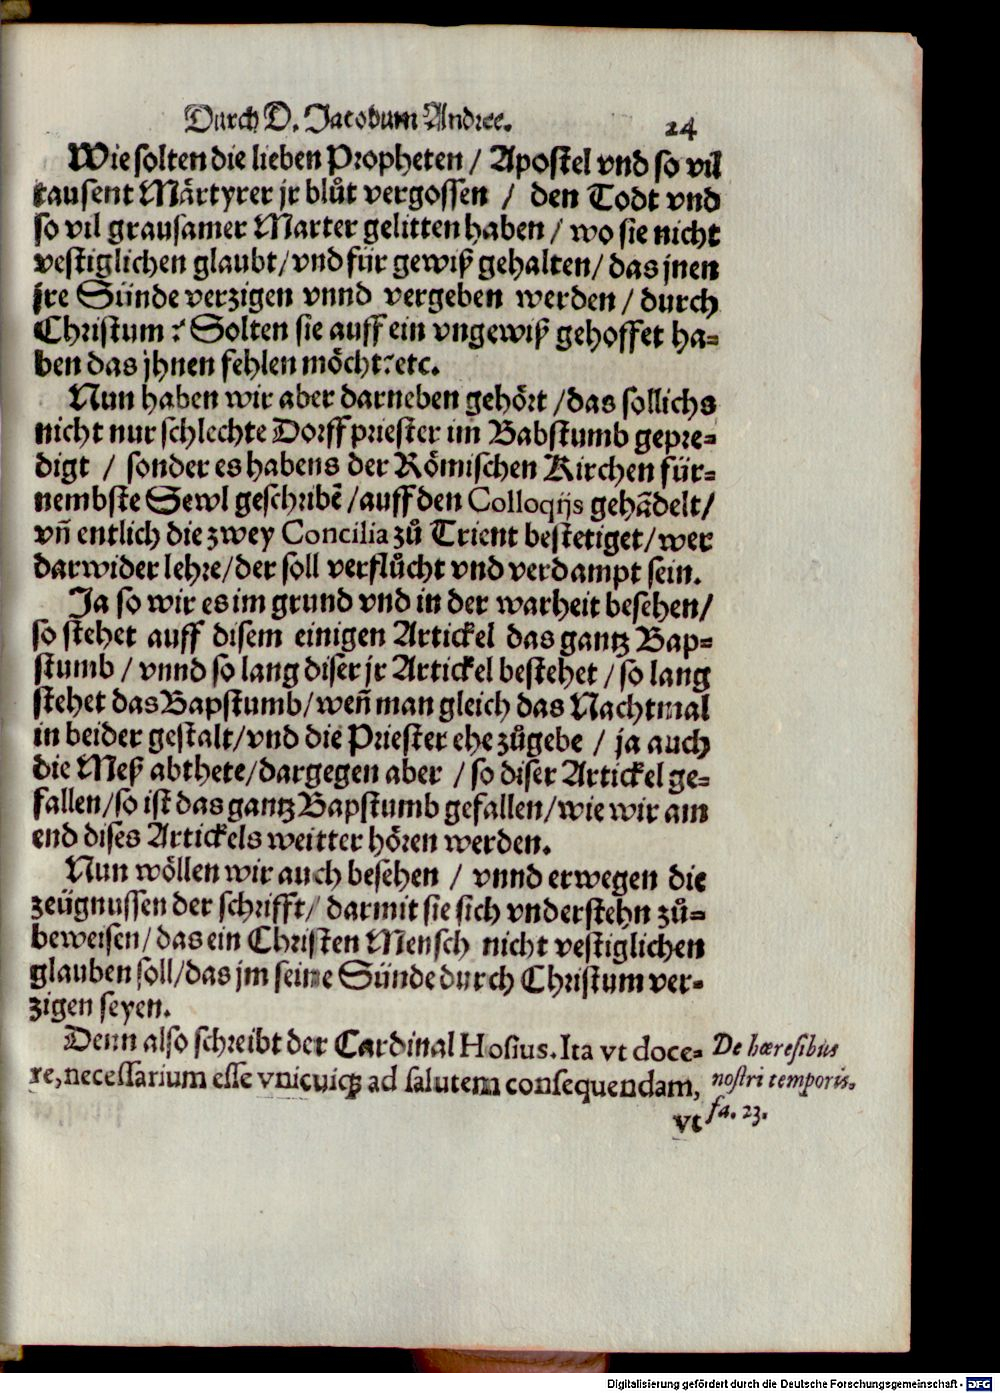 Durch D. Jacobum Andree. 24
Wie solten die lieben Propheten / Apostel vnd so vil
tausent Märtyrer jr blůt vergossen / den Todt vnd
so vil grausamer Marter gelitten haben / wo sie nicht
vestiglichen glaubt / vnd für gewiß gehalten / das jnen
jre Sünde verzigen vnnd vergeben werden / durch
Christum? Solten sie auff ein vngewiß gehoffet ha=
ben das jhnen fehlen möcht? etc.
Nun haben wir aber darneben gehört / das sollichs
nicht nur schlechte Dorffpriester im Babstumb gepre=
digt / sonder es habens der Römischen Kirchen für=
nembste Sewl geschribē / auff den Colloqijs gehādelt /
vñ entlich die zwey Concilia zů Trient bestetiget / wer
darwider lehre / der soll verflůcht vnd verdampt sein.
Ja so wir es im grund vnd in der warheit besehen /
so stehet auff disem einigen Artickel das gantz Bap=
stumb / vnnd so lang diser jr Artickel bestehet / so lang
stehet das Bapstumb / weñ man gleich das Nachtmal
in beider gestalt / vnd die Priester ehe zůgebe / ja auch
die Meß abthete / dargegen aber / so diser Artickel ge=
fallen / so ist das gantz Bapstumb gefallen / wie wir am
end dises Artickels weitter hören werden.
Nun wöllen wir auch besehen / vnnd erwegen die
zeügnussen der schrifft / darmit sie sich vnderstehn zů=
beweisen / das ein Christen Mensch nicht vestiglichen
glauben soll / das jm seine Sünde durch Christum ver=
zigen seyen.
Denn also schreibt der Cardinal Hosius. Ita vt doce=
re, necessarium esse vnicuiqꝫ ad salutem consequendam,
vt
De hæresibus
nostri temporis.
fa. 23.
Digitalisierung gefördert durch die Deutsche Forschungsgemeinschaft - DFG